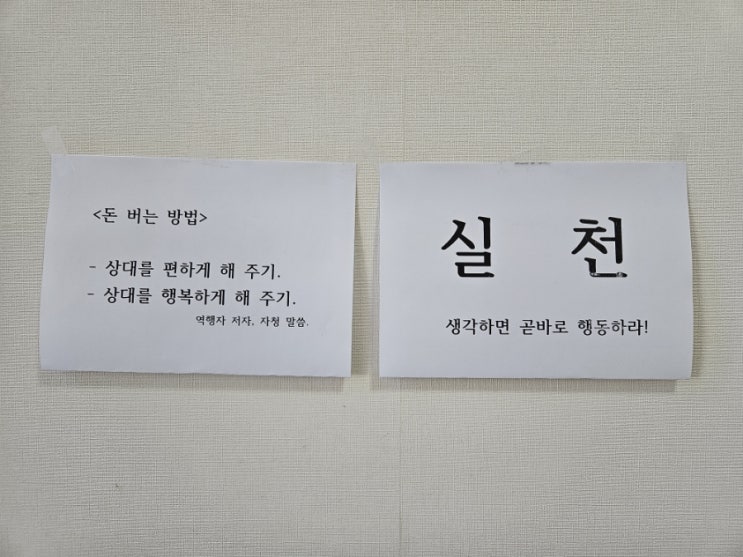 <돈 버는 방법>
- 상대를 편하게 해 주기.
- 상대를 행복하게 해 주기.
역행자 저자, 자청 말씀.
실 천
생각하면 곧바로 행동하라!